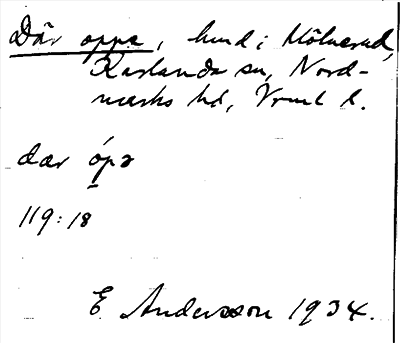 Där oppe, hund i Mölnerud,
Karlanda sn, Nord-
marks hd, Vrml l.
dær ópə
119:18
E. Andersson 1934.